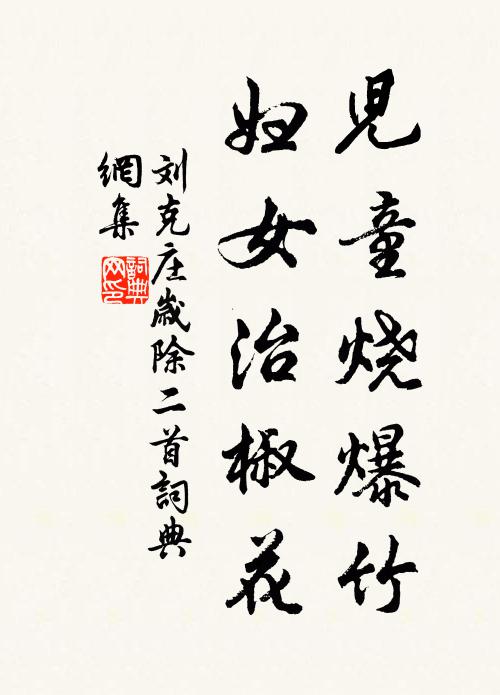 児童烧爆竹
妇女治椒花
刘克庄歳除二首詞典
網集
詞典
网印